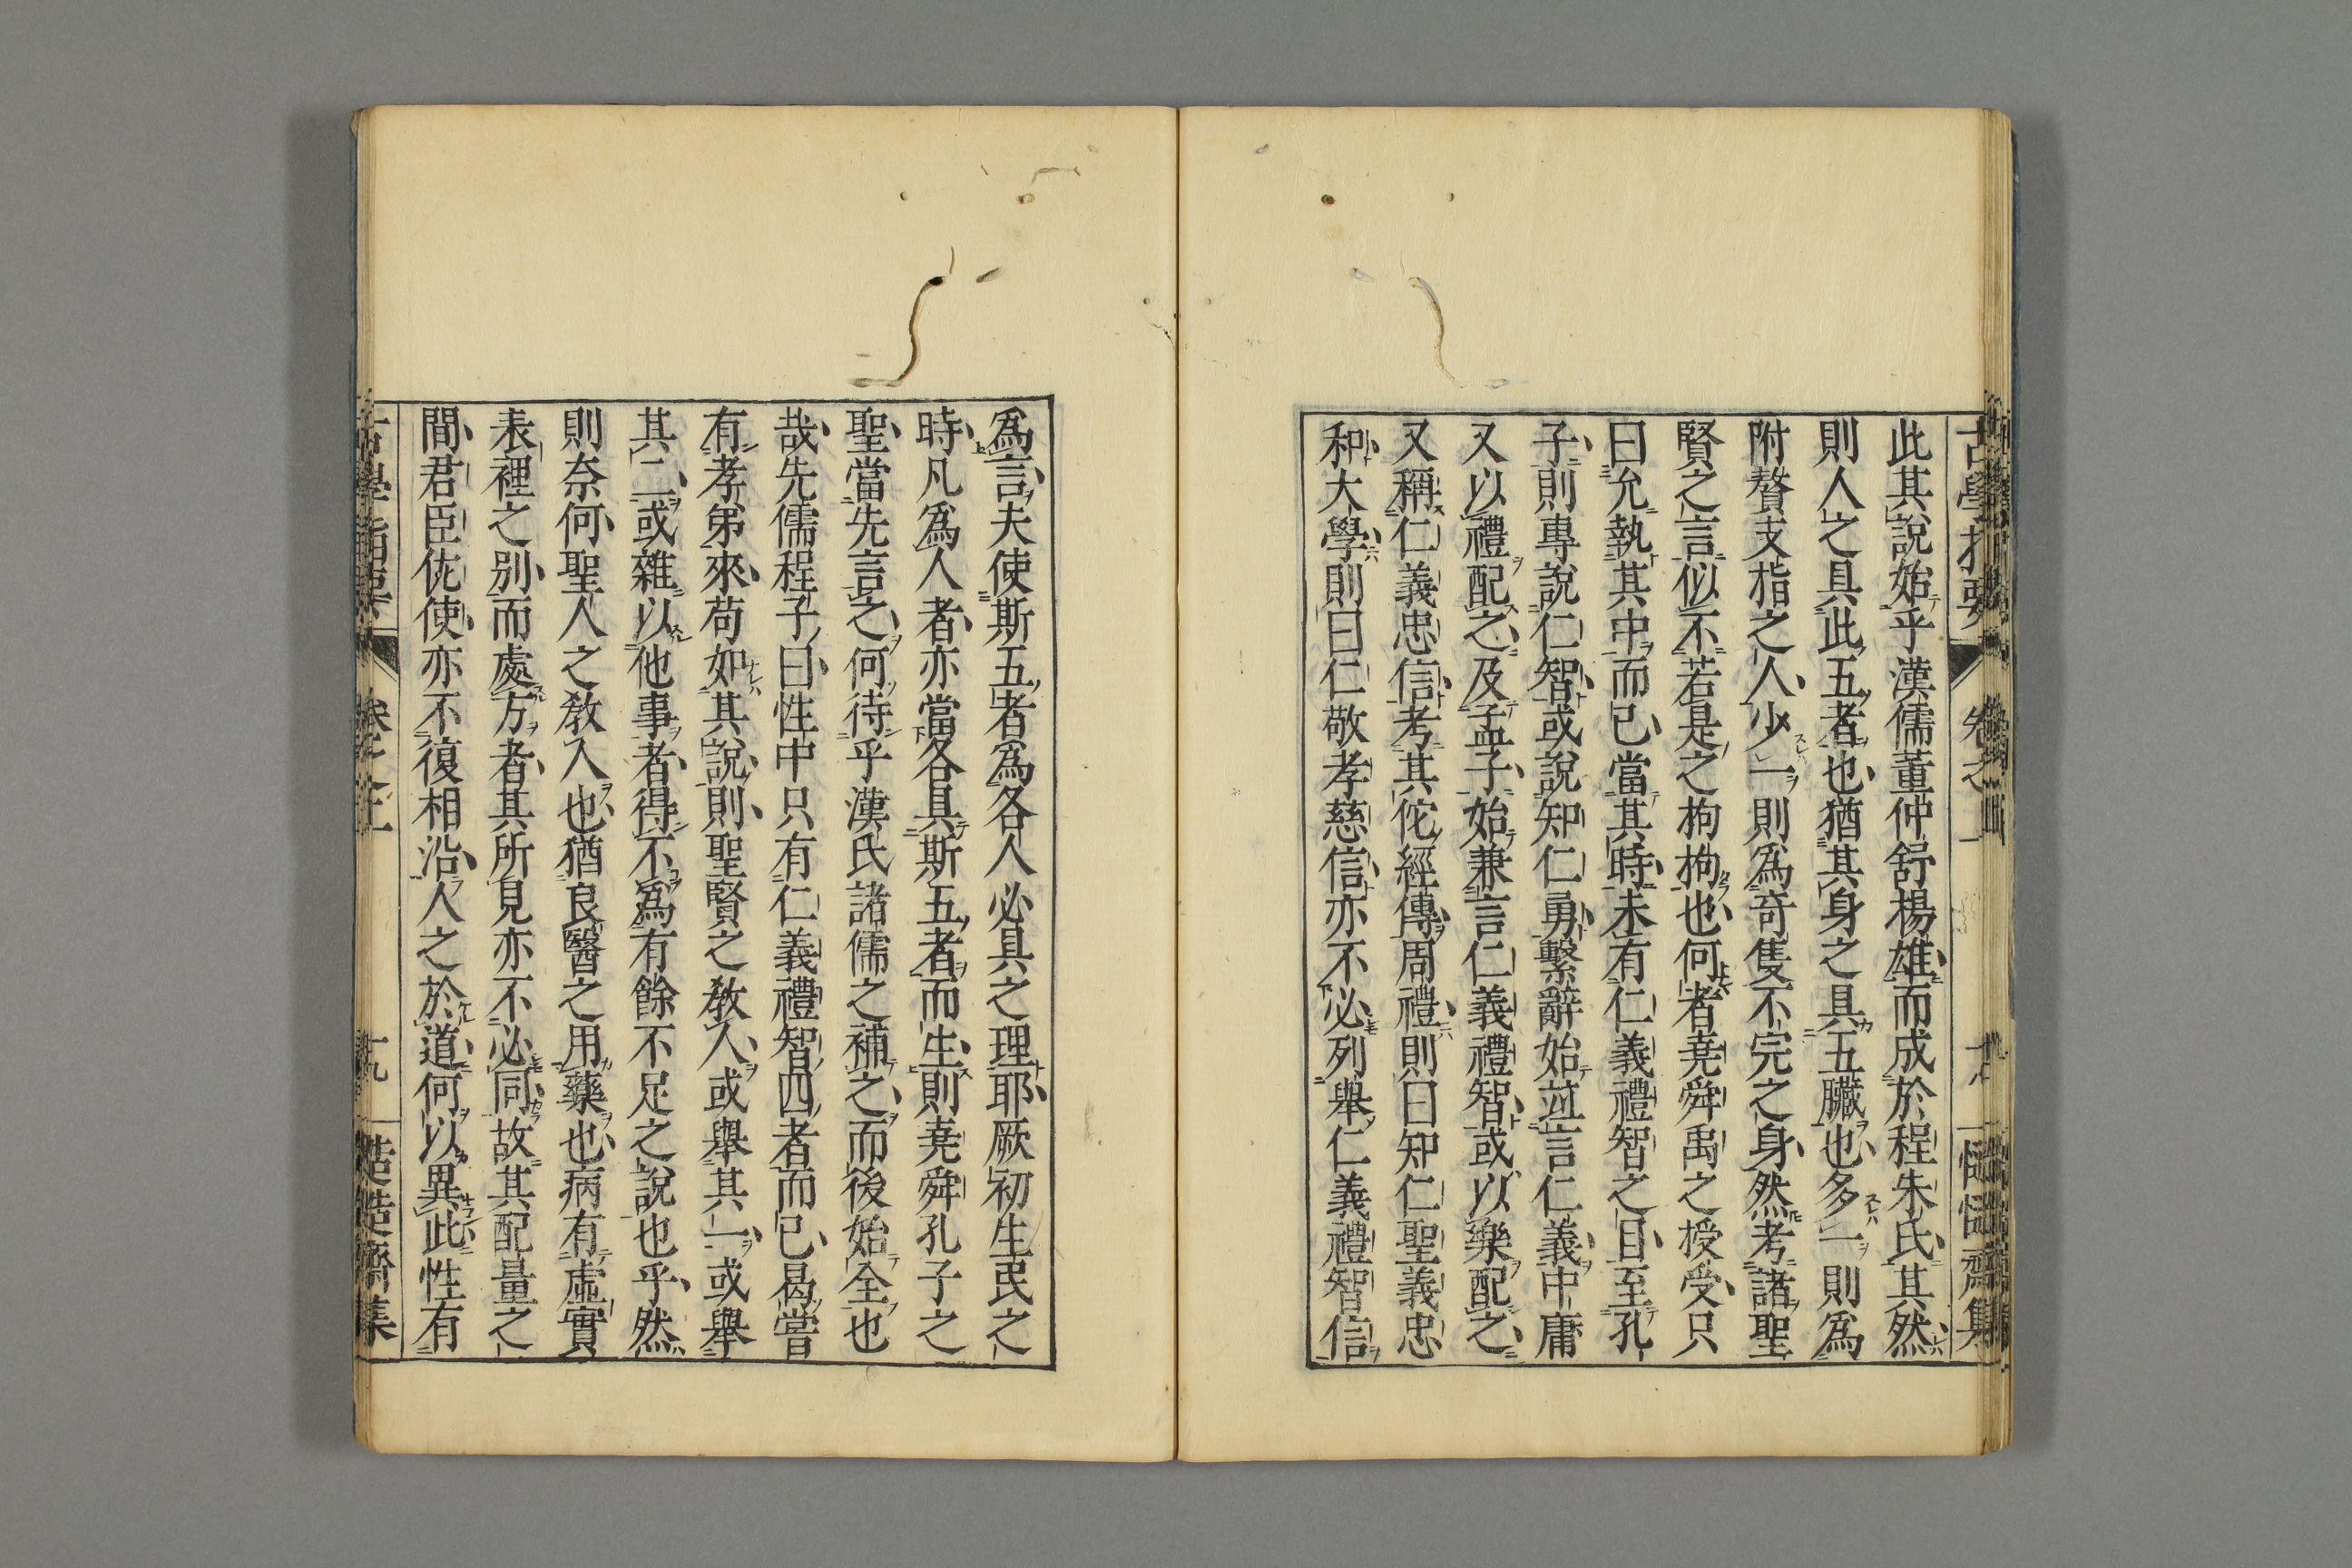 此其說始乎漢儒董仲舒楊雄而成於程朱氏其然
則人之具此五者也猶其身之具五臟也多一則爲
附贅支指之人少一則爲奇隻不完之身然考諸聖
賢之言似不若是之拘拘也何者堯舜禹之授受只
曰允執其中而已當其時未有仁義禮智之目至孔
子則專說仁智或說知仁勇繫辭始竝言仁義中庸
又以禮配之及孟子始兼言仁義禮智或以樂配之
又稱仁義忠信考其佗經傳周禮則曰知仁聖義忠
和大學則曰仁敬孝慈信亦不必列舉仁義禮智信
爲言夫使斯五者爲各人必具之理耶厥初生民之
時凡爲人者亦當各具斯五者而生則堯舜孔子之
聖當先言之何待乎漢氏諸儒之補之而後始全也
哉先儒程子曰性中只有仁義禮智四者而已曷嘗
有孝弟來苟如其說則聖賢之教人或舉其一或舉
其二或雜以他事者得不爲有餘不足之說也乎然
則奈何聖人之教人也猶良醫之用藥也病有虛實
表裡之別而處方者其所見亦不必同故其配量之
間君臣佐使亦不復相沿人之於道何以異此性有
古學指要
卷之上
十九
慥慥齋集